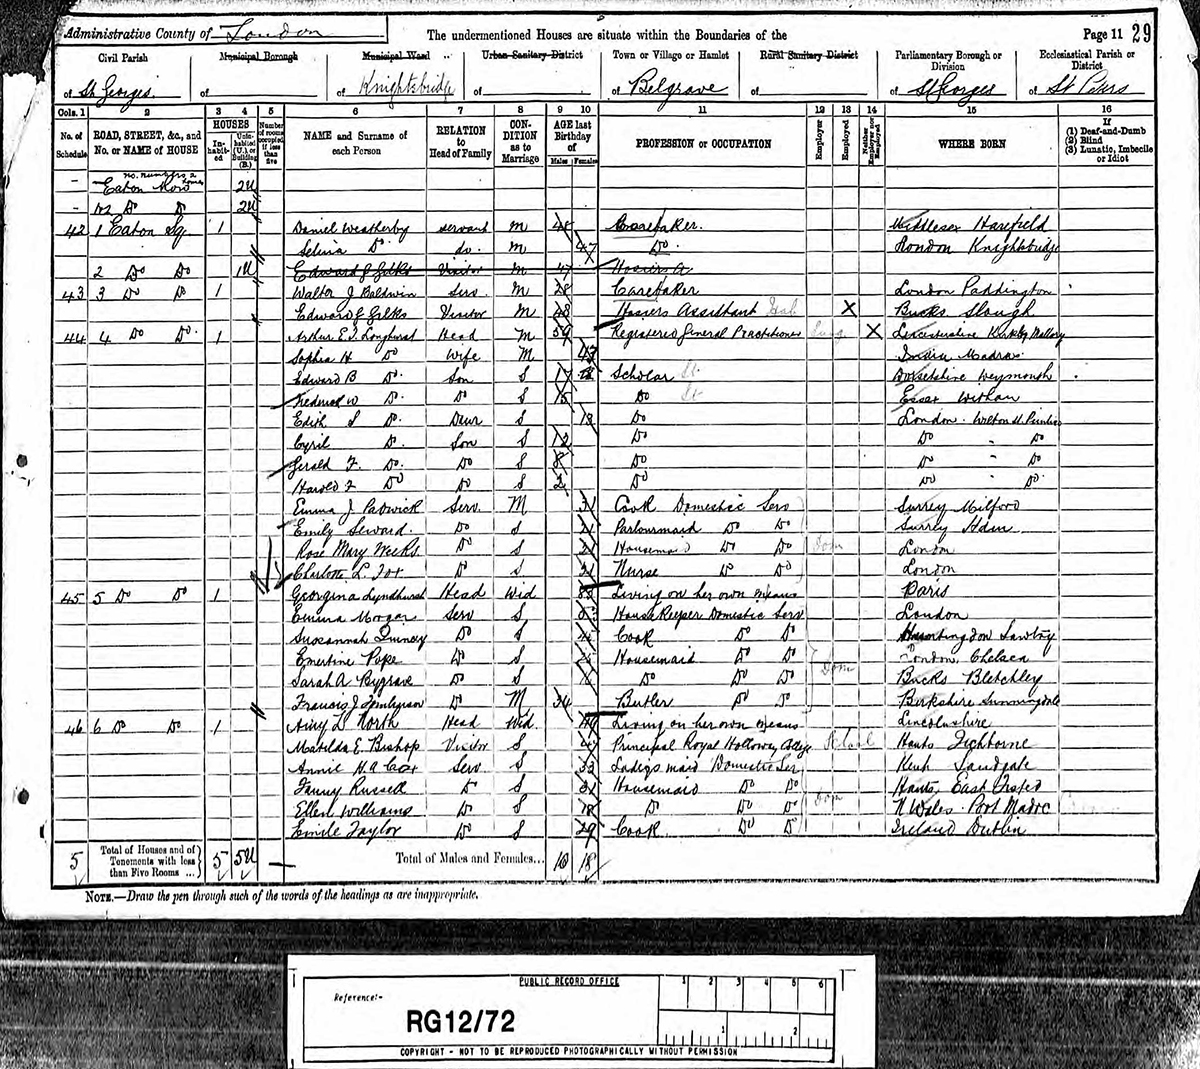 Administrative County of London
The undermentioned Houses are situate within the Boundaries of the
Page 11 29
Civil Parish Municipal Borough Municipal Ward Urban Sanitary District Town or Village or Hamlet Rural Sanitary District Parliamentary Borough or Division Ecclesiastical Parish or District
of St Georges of of Knightsbridge of of Belgrave of of St Georges of St Peters
Cols. 1 2 3 4 5 6 7 8 9 10 11 12 13 14 15 16
No. of Schedule ROAD, STREET, &c., and No. or NAME of HOUSE HOUSES Inhabited Uninhabited (U.) or Building (B.) Number of rooms occupied if less than five NAME and Surname of each Person RELATION to Head of Family CONDITION as to Marriage AGE last Birthday of Males Females PROFESSION or OCCUPATION Employer Employed Neither Employer nor Employed WHERE BORN If (1) Deaf-and-Dumb (2) Blind (3) Lunatic, Imbecile or Idiot
- Eaton Row 2U
- Do Do 2U
42 1 Eaton Sq. 1 Daniel Weatherby Servant M 48 Caretaker. Middlesex Harefield
Selina Do. do. M 47 Do. London Knightsbridge
2 Do Do 1U Edward J Gilks Visitor M 47 Hosiers A
43 3 Do Do 1 Walter J Baldwin Serv. M 28 Caretaker London Paddington
Edward J Gilks Visitor M 48 Hosiers Assistant X Bucks Slough
44 4 Do Do. 1 Arthur E.T. Longhurst Head M 59 Registered General Practitioner X Leicestershire Kirkby Mallory
Sophia H Do Wife M 47 India Madras
Edward B Do. Son S 17 Scholar St. Dorsetshire Weymouth
Frederick W Do. Do S 15 Do St Essex Witham
Edith S Do. Daur S 13 Do London. Wilton St Pimlico
Cyril Do. Son S 12 Do Do " Do
Gerald F. Do. Do S 8 Do Do " Do
Harold F Do Do S 2 Do Do " Do.
Emma J. Padwick Serv. M 31 Cook Domestic Serv Surrey Milford
Emily Seward. Do S 21 Parlourmaid Do Do Surrey
Rose Mary Weeks Do S 21 Housemaid Do Do Dom London
Charlotte L. Fox Do S 21 Nurse Do Do London
45 5 Do Do 1 Georgina Lyndhurst Head Wid Living on her own means Paris
Emma Morgan Serv S HouseKeeper Domestic Serv London
Susannah Do S Cook Do Do Huntingdon Sawtry
Emertine Pope Do S Housemaid Do Do Dom London Chelsea
Sarah A Bygrave Do S Do Do Do Bucks Bletchley
Francis J Tomlinson Do M 34 Butler Do Do Berkshire Sunningdale
46 6 Do Do 1 North Head Wid. Living on her own means Lincolnshire
Matilda E. Bishop Visitor S 47 Principal Royal Holloway College Hants Tichborne
Annie H.A Cox Serv S 33 Ladys maid Domestic Ser Kent Sandgate
Fanny Russell Do S 31 Housemaid Do Do Hants, East Tisted
Ellen Williams Do S 18 Do Do Do Dom N Wales. Port Madoc
Emile Taylor Do S 29 Cook Do Do Ireland Dublin
5 Total of Houses and of Tenements with less than Five Rooms ... 5 5U — Total of Males and Females... 10 18
NOTE.—Draw the pen through such of the words of the headings as are inappropriate.
PUBLIC RECORD OFFICE
1 2 3 4 5 6
Reference:-
RG12/72
1 2
COPYRIGHT - NOT TO BE REPRODUCED PHOTOGRAPHICALLY WITHOUT PERMISSION